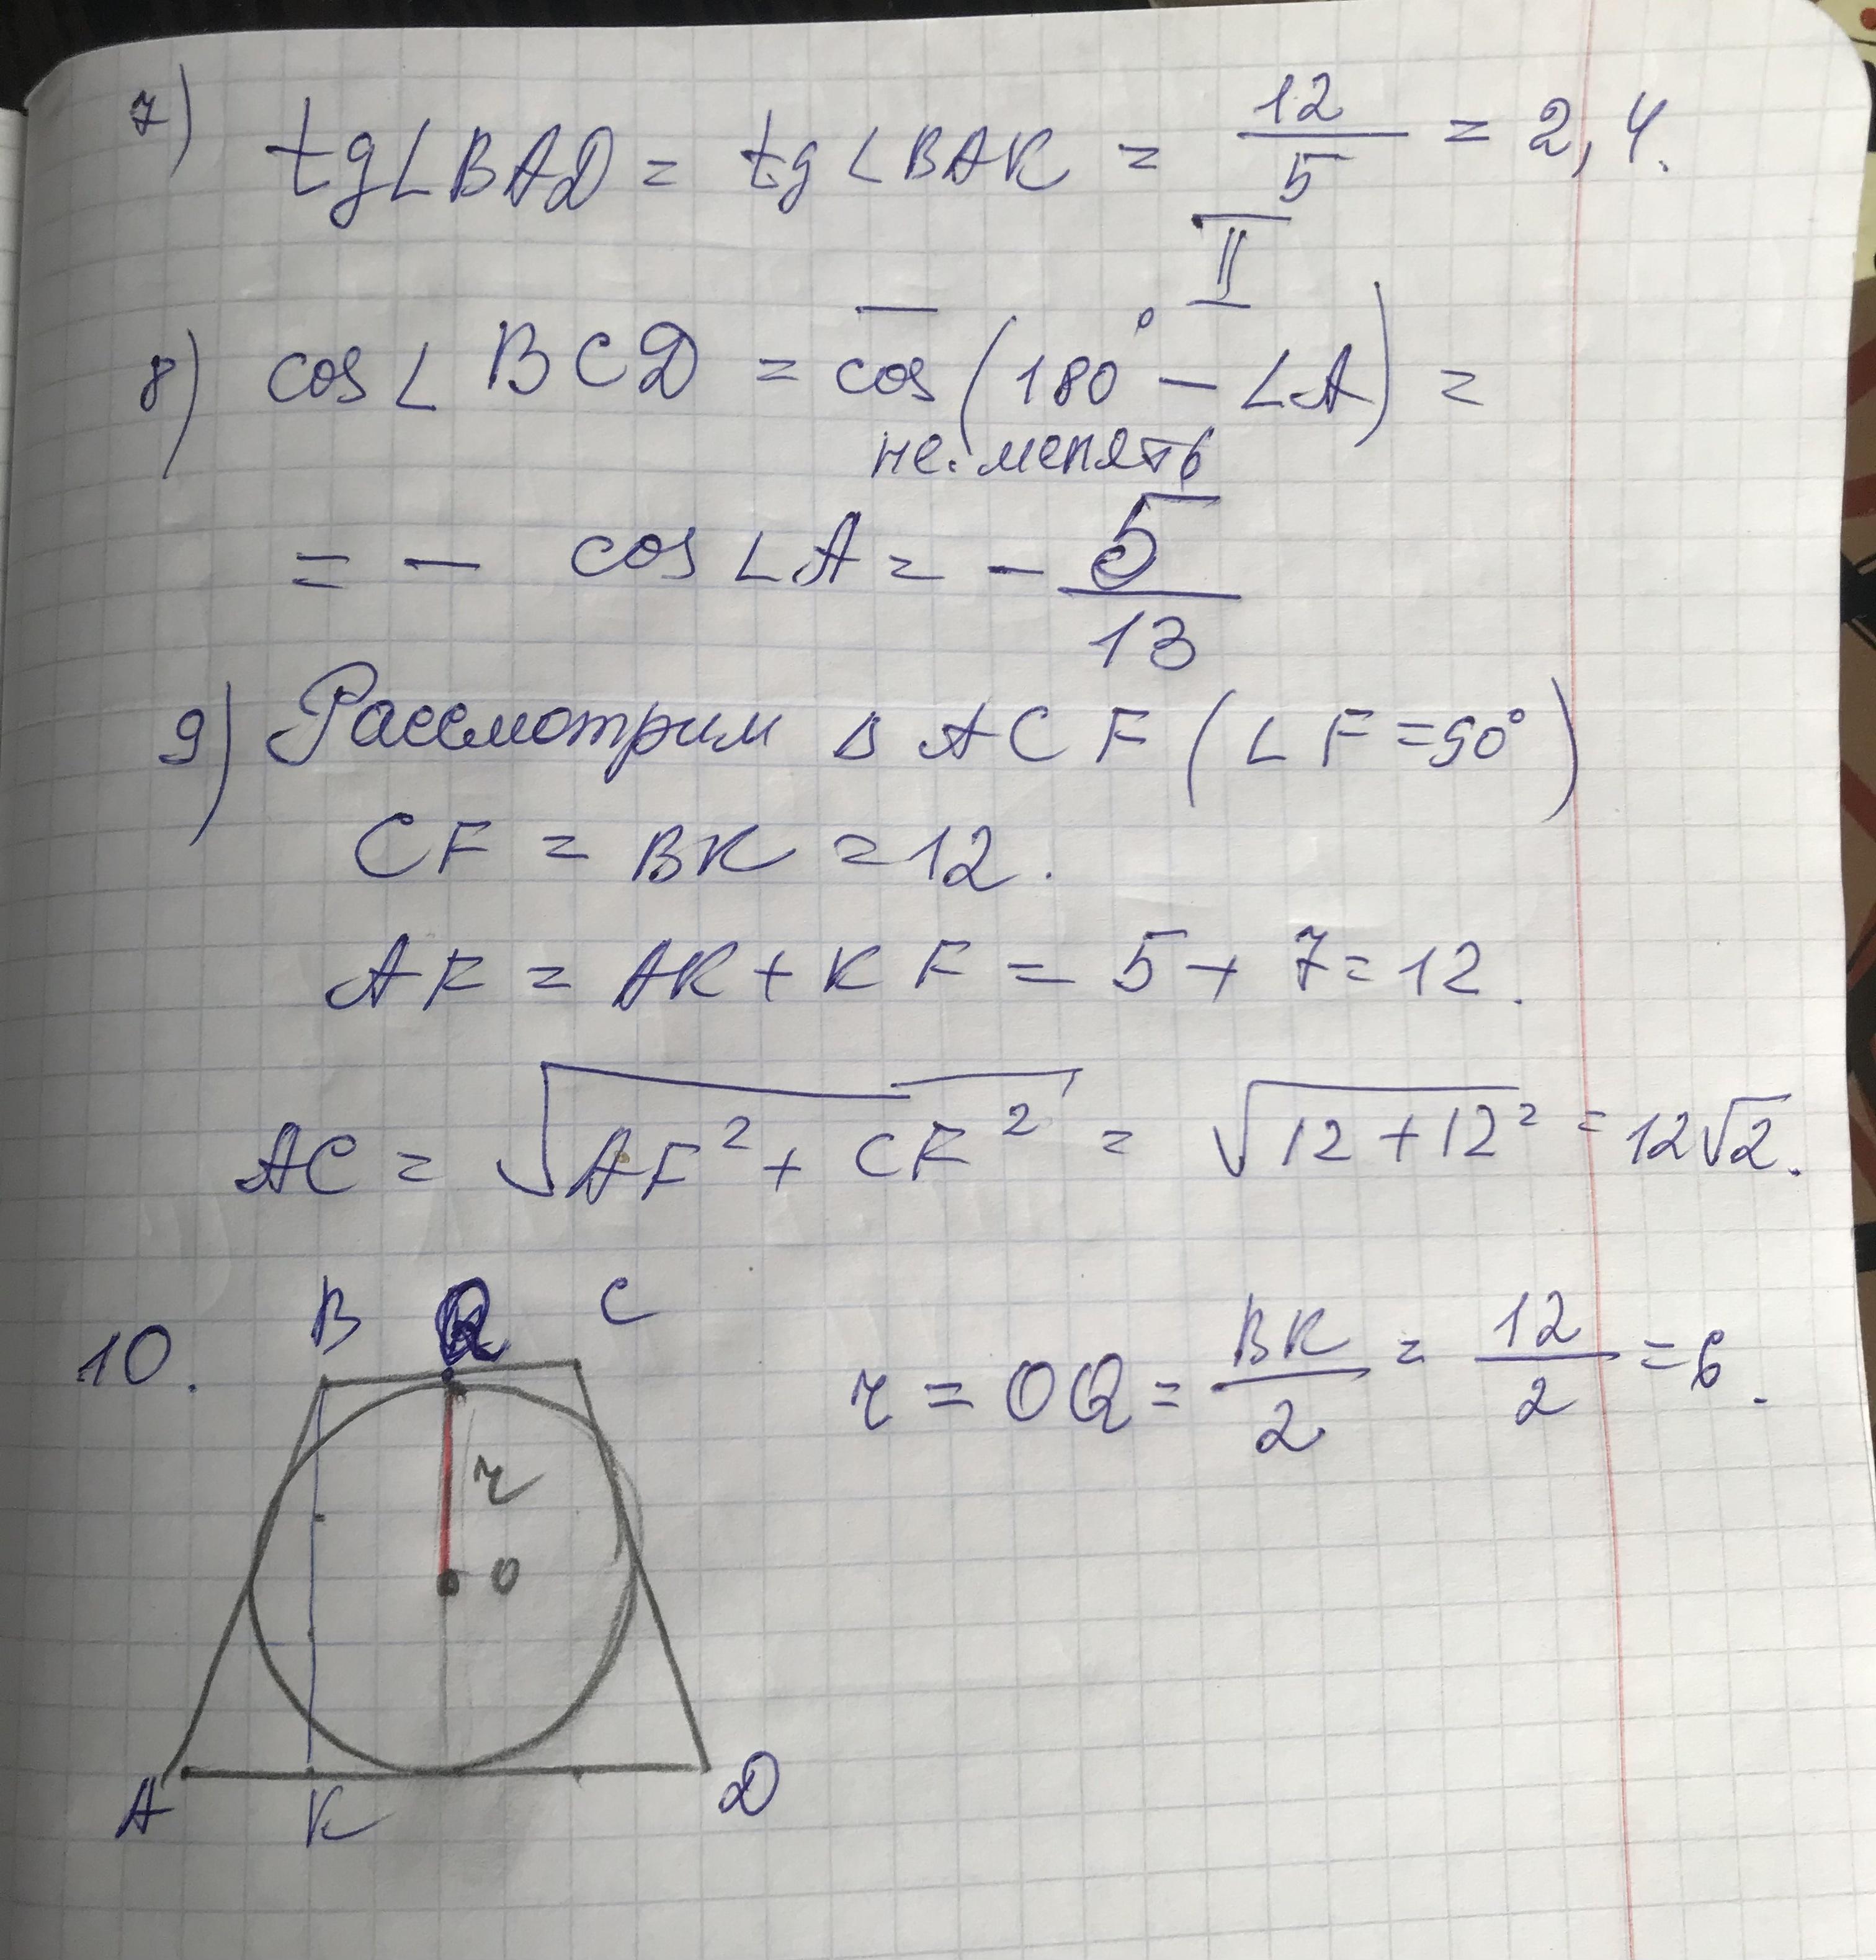 7) tg∠BAD = tg∠BAK = 12/5 = 2,4.
II
8) cos∠BCD = cos(180° − ∠A) =
не менять
= − cos∠A = − 5/13
9) Рассмотрим △ ACF (∠F = 90°)
CF = BK = 12.
AF = AK + KF = 5 + 7 = 12.
AC = √(AF² + CF²) = √(12 + 12²) = 12√2.
10.
B Q C
r = OQ = BK/2 = 12/2 = 6.
r
O
A K D